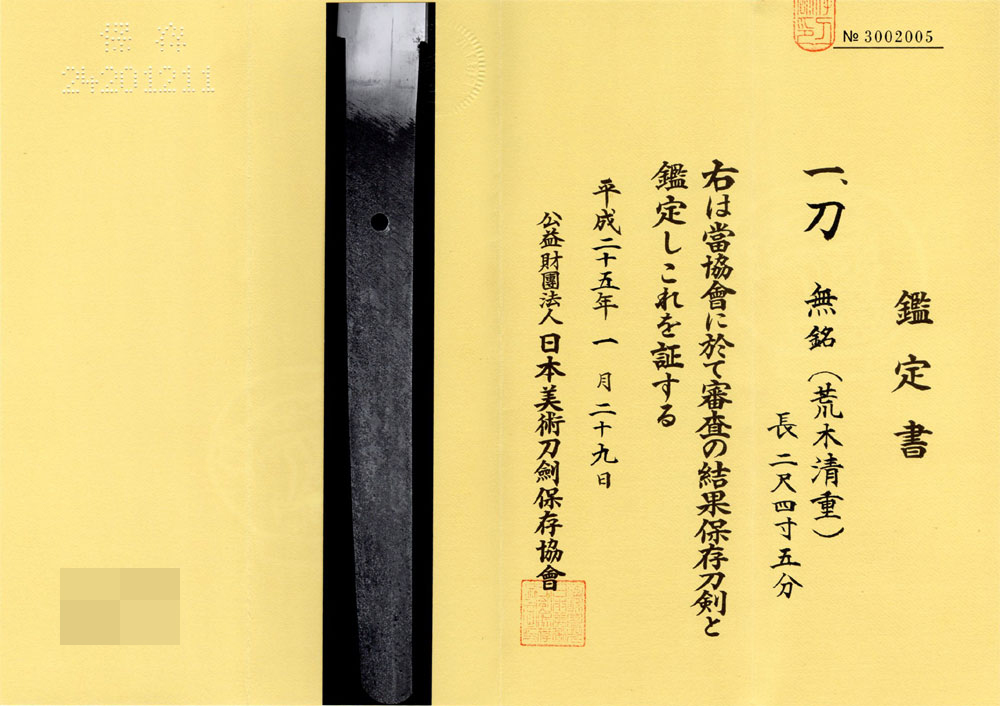 № 3002005
鑑定書
一、刀 無銘(荒木清重)
長二尺四寸五分
右は當協會に於て審査の結果保存刀剣と
鑑定しこれを証する
平成二十五年一月二十九日
公益財團法人日本美術刀劍保存協會
保存
24201211